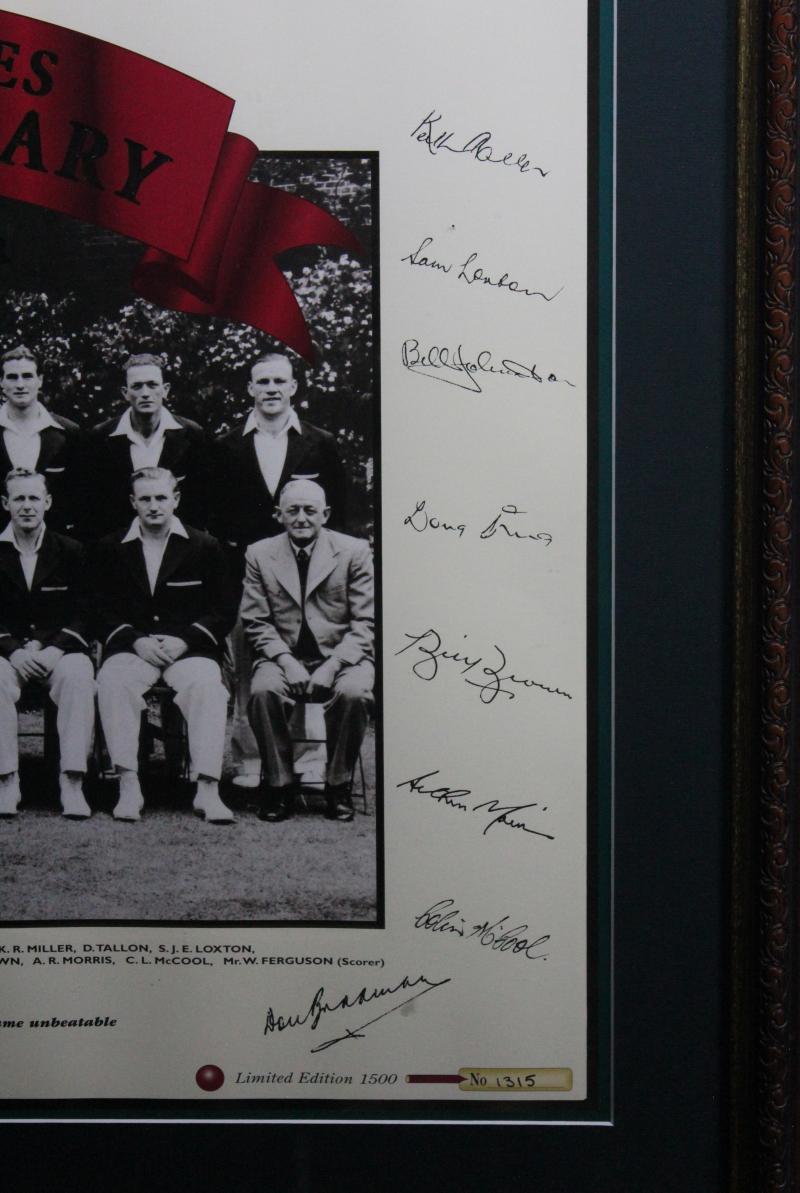 ES
ARY
Keith Miller
Sam Loxton
Bill Johnston
Doug Ring
Bill Brown
Arthur Morris
Colin McCool
K. R. MILLER, D. TALLON, S. J. E. LOXTON,
WN, A. R. MORRIS, C. L. McCOOL, Mr. W. FERGUSON (Scorer)
Don Bradman
me unbeatable
Limited Edition 1500 No 1315